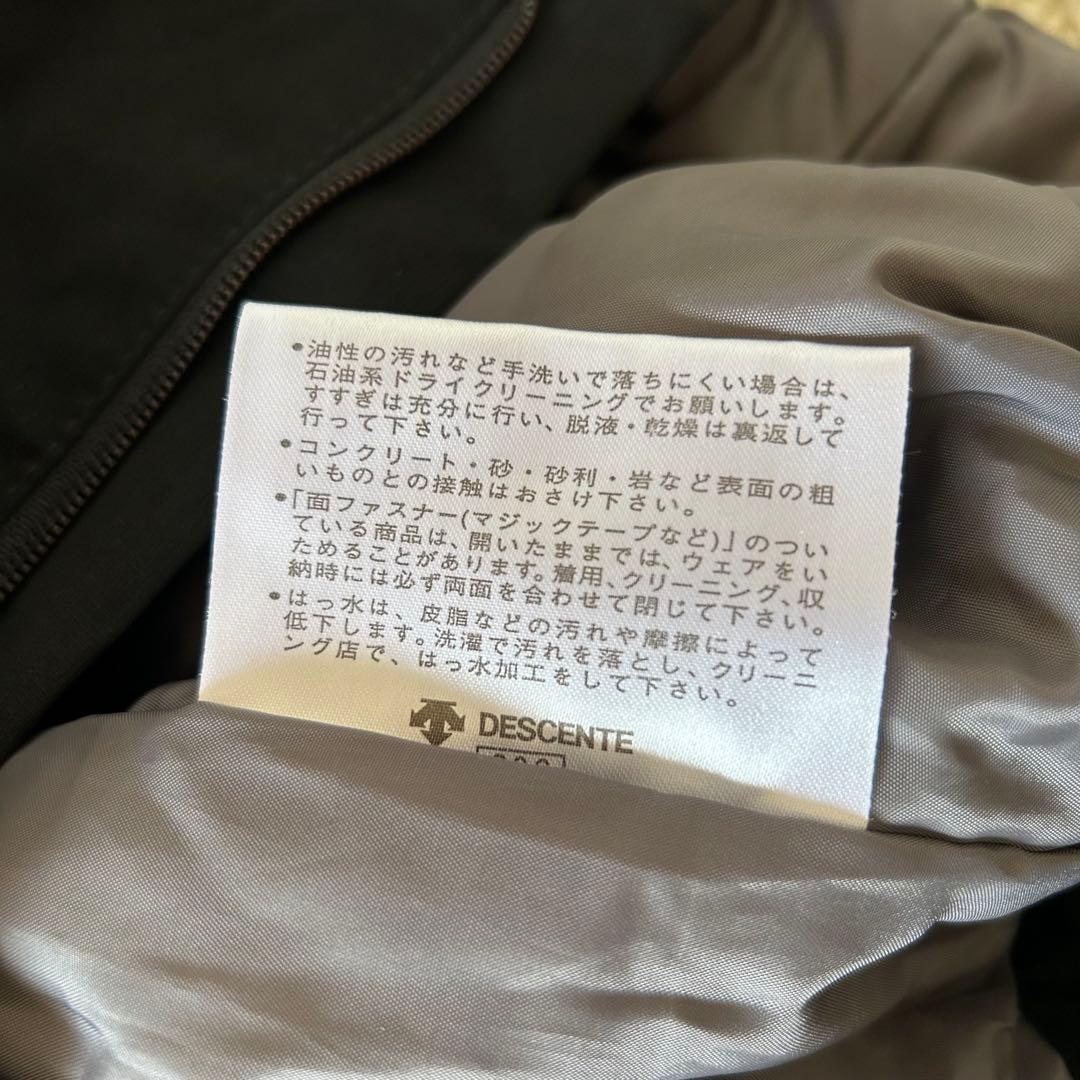 •油性の汚れなど手洗いで落ちにくい場合は、
石油系ドライクリーニングでお願いします。
すすぎは充分に行い、脱液・乾燥は裏返して
行って下さい。
•コンクリート・砂・砂利・岩など表面の粗
いものとの接触はおさけ下さい。
•「面ファスナー(マジックテープなど)」のつい
ている商品は、開いたままでは、ウェアをい
ためることがあります。着用、クリーニング、収
納時には必ず両面を合わせて閉じて下さい。
•はっ水は、皮脂などの汚れや摩擦によって
低下します。洗濯で汚れを落とし、クリーニ
ング店で、はっ水加工をして下さい。
DESCENTE